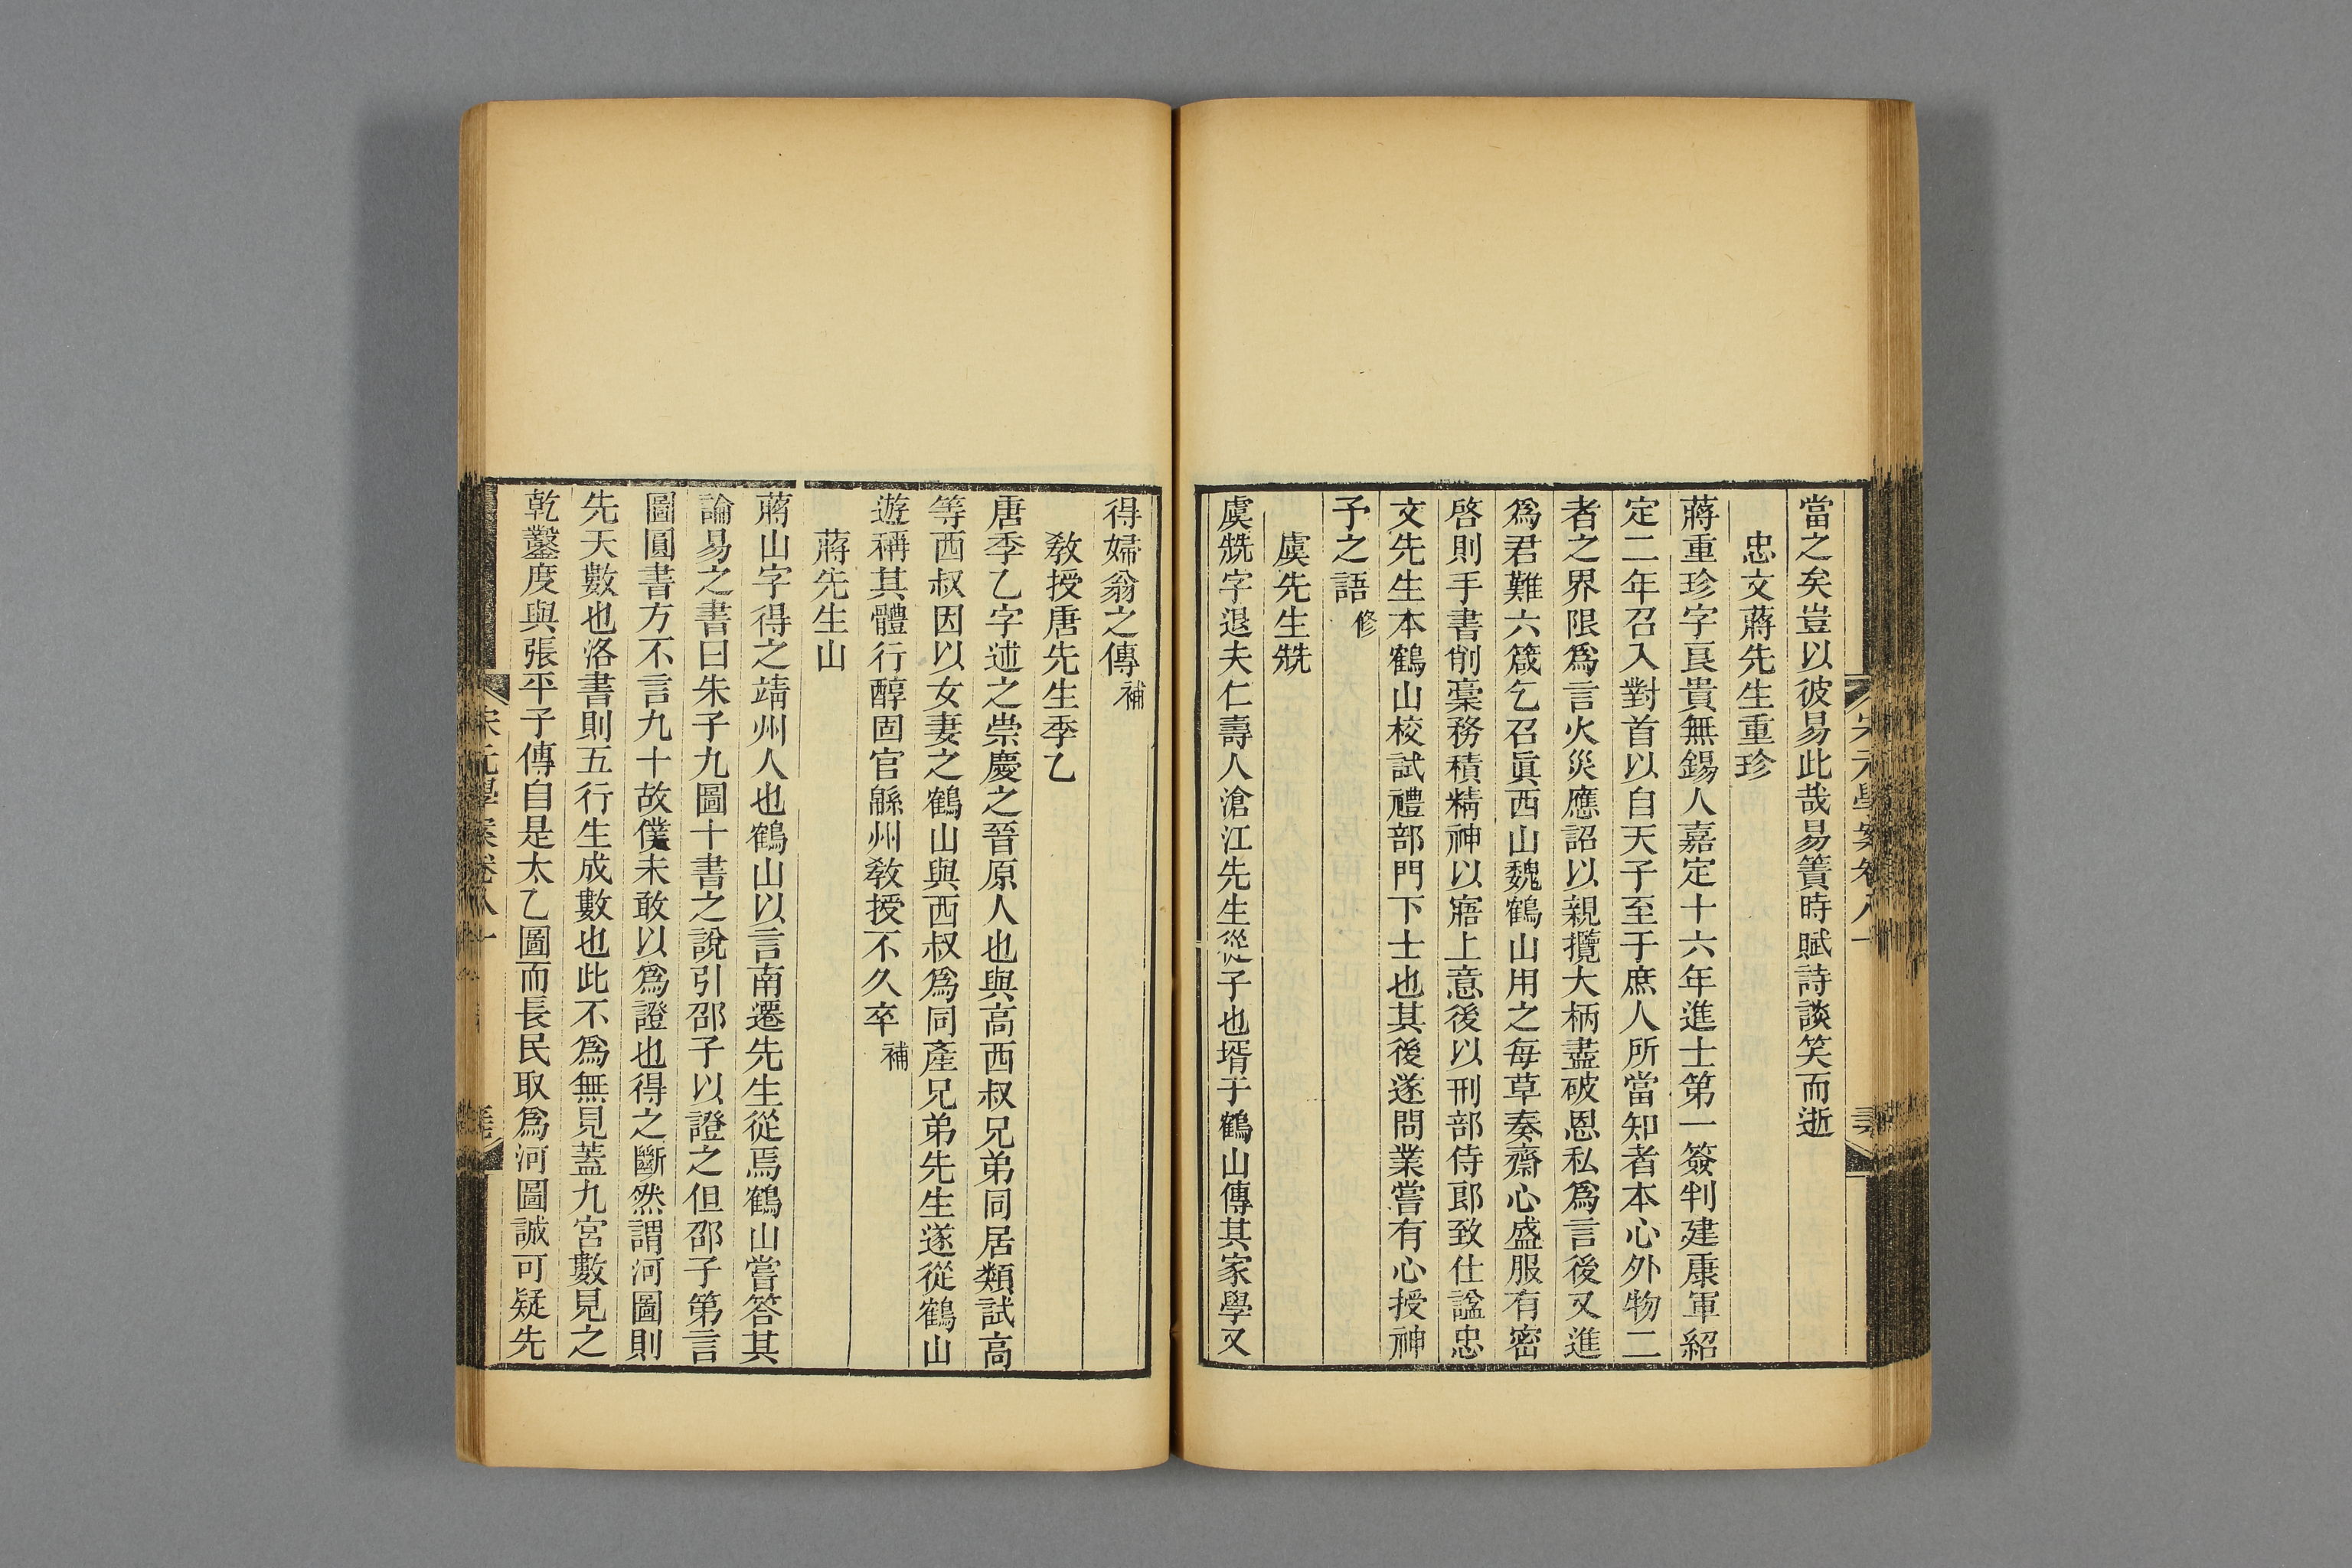 當之矣豈以彼易此哉易簀時賦詩談笑而逝
忠文蔣先生重珍
蔣重珍字良貴無錫人嘉定十六年進士第一簽判建康軍紹
定二年召入對首以自天子至于庶人所當知者本心外物二
者之界限爲言火災應詔以親攬大柄盡破恩私爲言後又進
爲君難六箴乞召眞西山魏鶴山用之每草奏齋心盛服有密
啓則手書削稾務積精神以寤上意後以刑部侍郎致仕諡忠
文先生本鶴山校試禮部門下士也其後遂問業嘗有心授神
予之語修
虞先生兟
虞兟字退夫仁壽人滄江先生從子也壻于鶴山傳其家學又
得婦翁之傳補
敎授唐先生季乙
唐季乙字述之崇慶之晉原人也與高西叔兄弟同居類試高
等西叔因以女妻之鶴山與西叔爲同產兄弟先生遂從鶴山
遊稱其體行醇固官緜州敎授不久卒補
蔣先生山
蔣山字得之靖州人也鶴山以言南遷先生從焉鶴山嘗答其
論易之書曰朱子九圖十書之說引邵子以證之但邵子第言
圖圓書方不言九十故僕未敢以爲證也得之斷然謂河圖則
先天數也洛書則五行生成數也此不爲無見蓋九宮數見之
乾鑿度與張平子傳自是太乙圖而長民取爲河圖誠可疑先
宋元學案卷八十